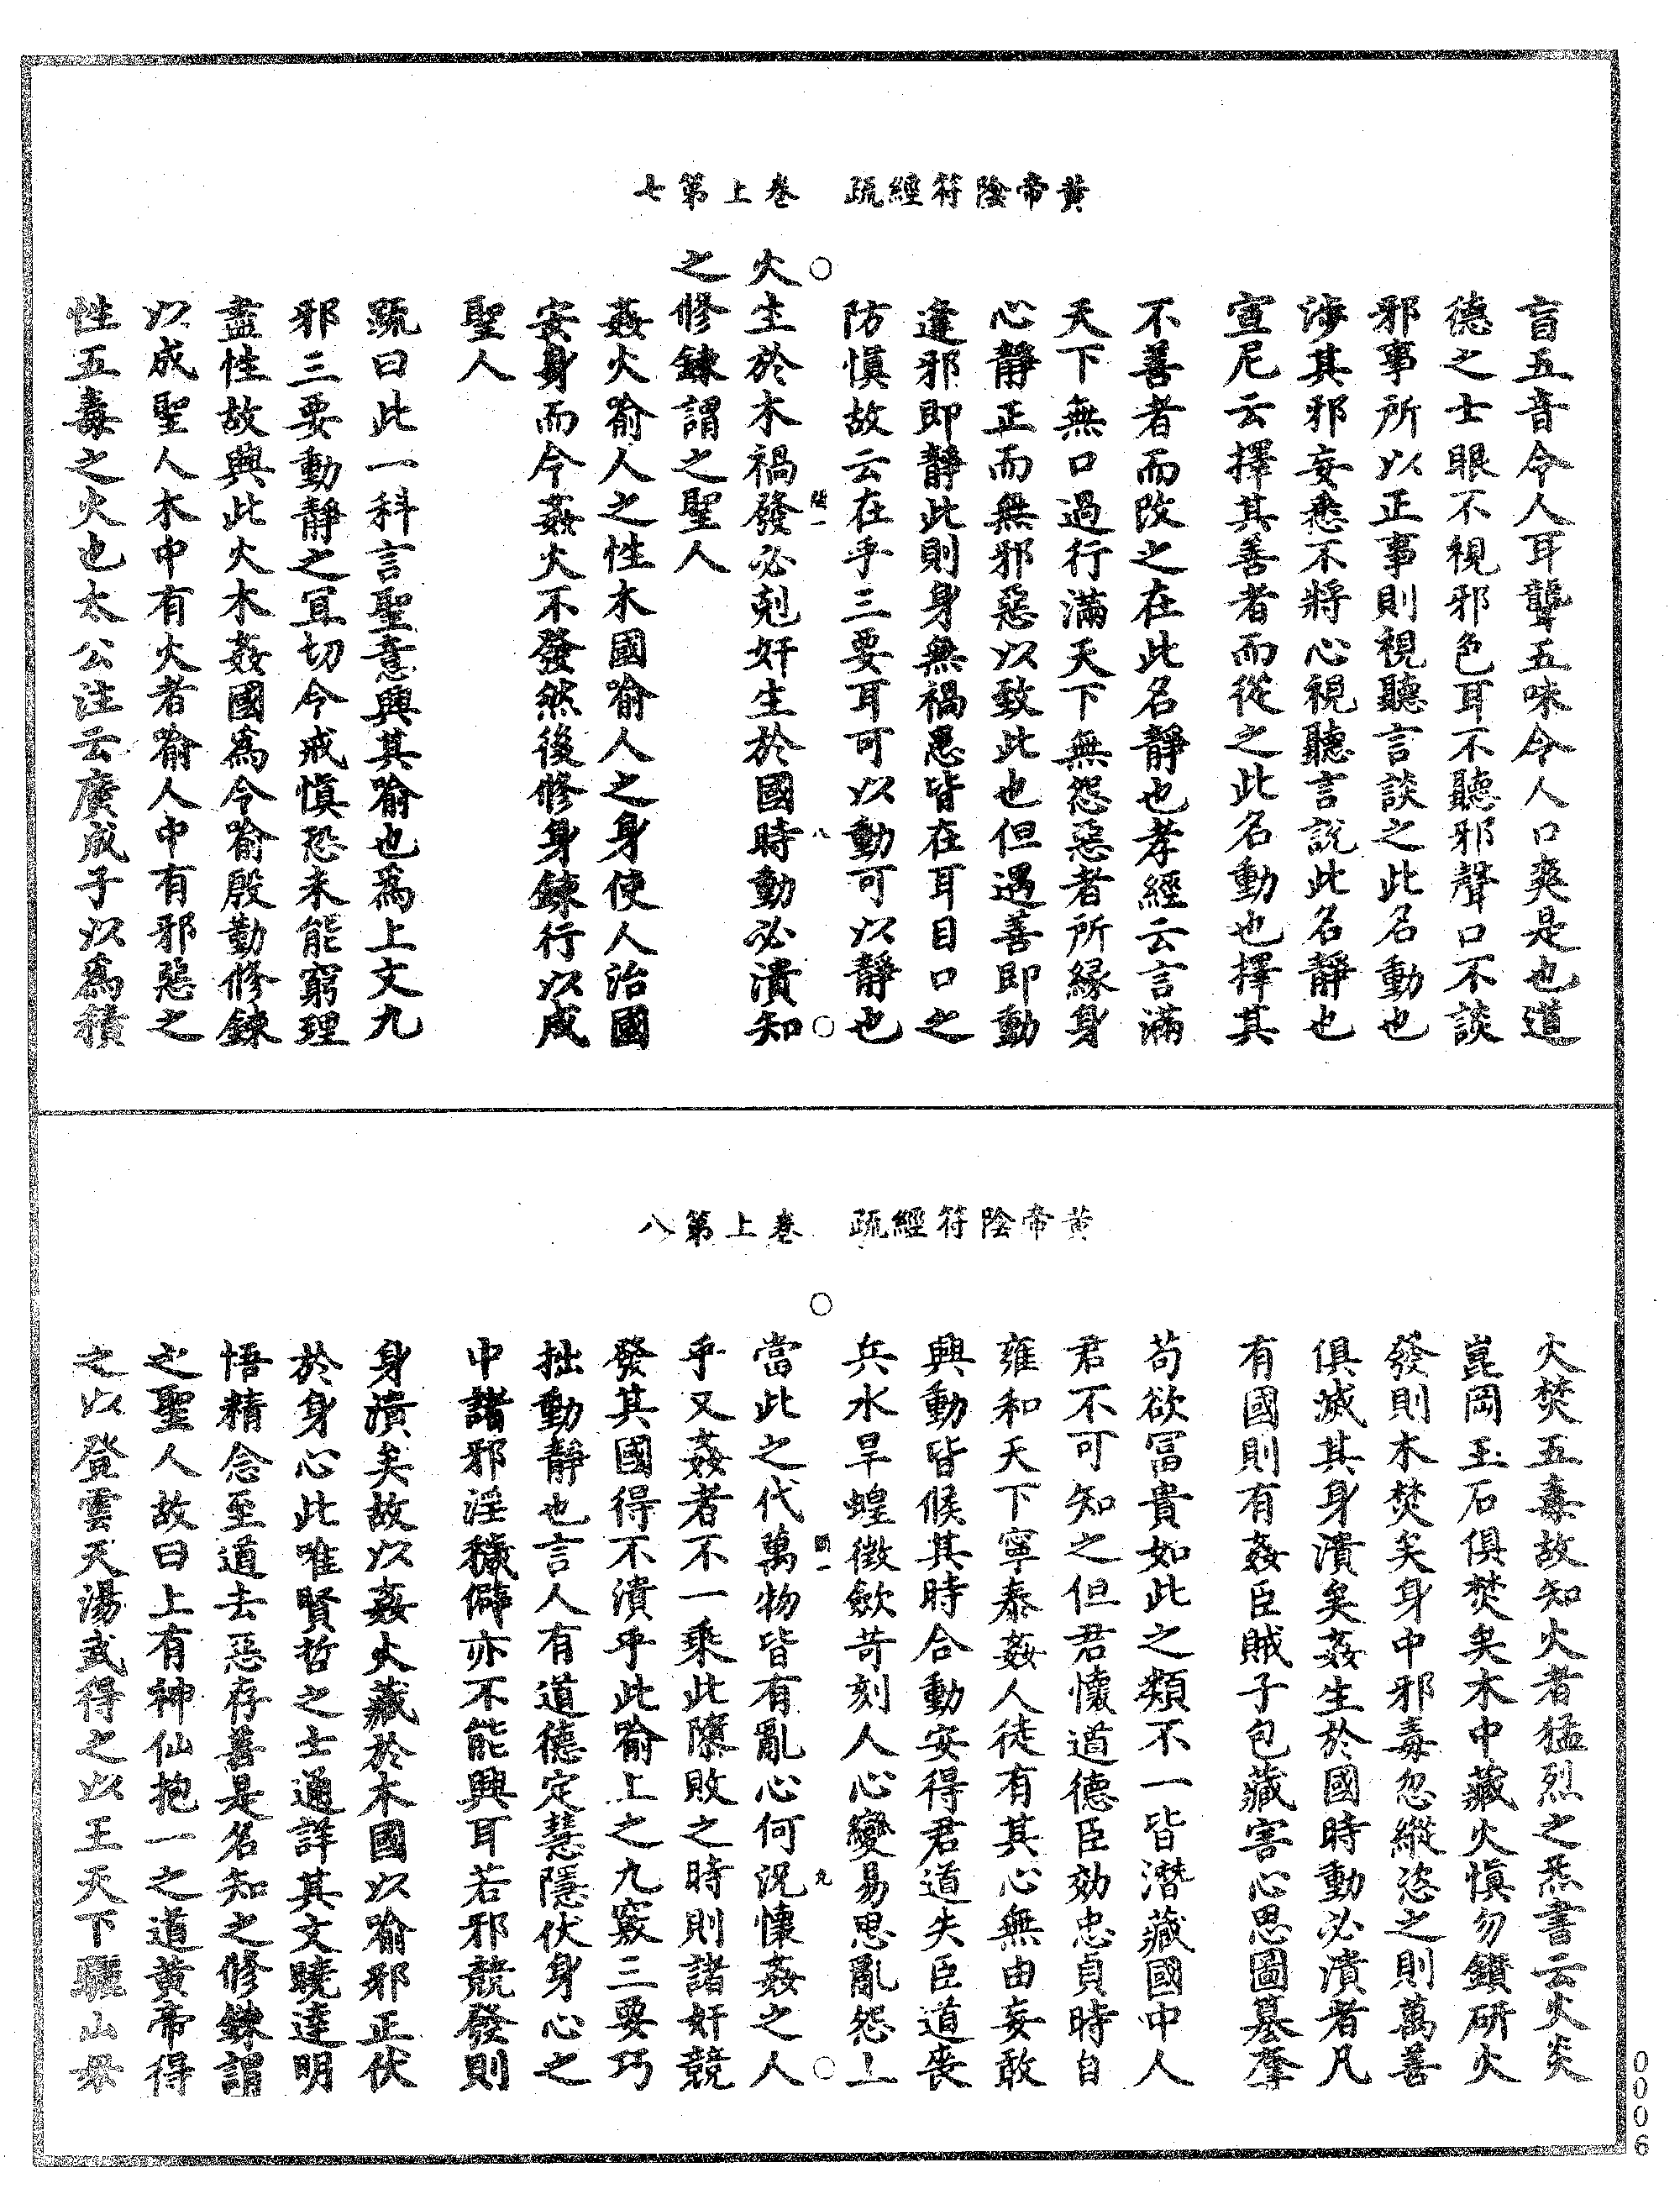 黃帝陰符經疏　卷上第七
盲五音令人耳聾五味令人口爽是也道
德之士眼不視邪色耳不聽邪聲口不談
邪事所以正事則視聽言談之此名動也
涉其邪妄悉不將心視聽言說此名靜也
宣尼云擇其善者而從之此名動也擇其
不善者而改之在此名靜也孝經云言滿
天下無口過行滿天下無怨惡者所緣身
心靜正而無邪惡以致此也但遇善即動
逢邪即靜此則身無禍愚皆在耳目口之
防慎故云在乎三要耳可以動可以靜也
○
一
八
○
火生於木禍發必剋奸生於國時動必潰知
之修鍊謂之聖人
姦火喻人之性木國喻人之身使人治國
安身而令姦火不發然後修身鍊行以成
聖人
疏曰此一科言聖意興其喻也為上文九
邪三要動靜之宜切令戒慎恐未能窮理
盡性故興此火木姦國為令喻殷勤修鍊
以成聖人木中有火者喻人中有邪惡之
性五毒之火也太公注云廣成子以為積
黃帝陰符經疏　卷上第八
火焚五毒故知火者猛烈之炁書云火炎
崑岡玉石俱焚矣木中藏火慎勿鑽研火
發則木焚矣身中邪毒忽縱恣之則萬善
俱滅其身潰矣姦生於國時動必潰者凡
有國則有姦臣賊子包藏害心思圖篡奪
苟欲冨貴如此之類不一皆潛藏國中人
君不可知之但君懷道德臣効忠貞時自
雍和天下寧泰姦人徒有其心無由妄敢
興動皆候其時合動安得君道失臣道喪
兵水旱蝗徵斂苛刻人心變易思亂怨上
○
一
九
○
當此之代萬物皆有亂心何況懷姦之人
乎又姦者不一乘此隳敗之時則諸奸競
發其國得不潰乎此喻上之九竅三要巧
拙動靜也言人有道德定慧隱伏身心之
中諸邪淫穢僻亦不能興耳若邪競發則
身潰矣故以姦火藏於木國以喻邪正伏
於身心此唯賢哲之士通詳其文曉達明
悟精念至道去惡存善是名知之修鍊謂
之聖人故曰上有神仙抱一之道黃帝得
之以登雲天湯武得之以王天下驪山母
0006